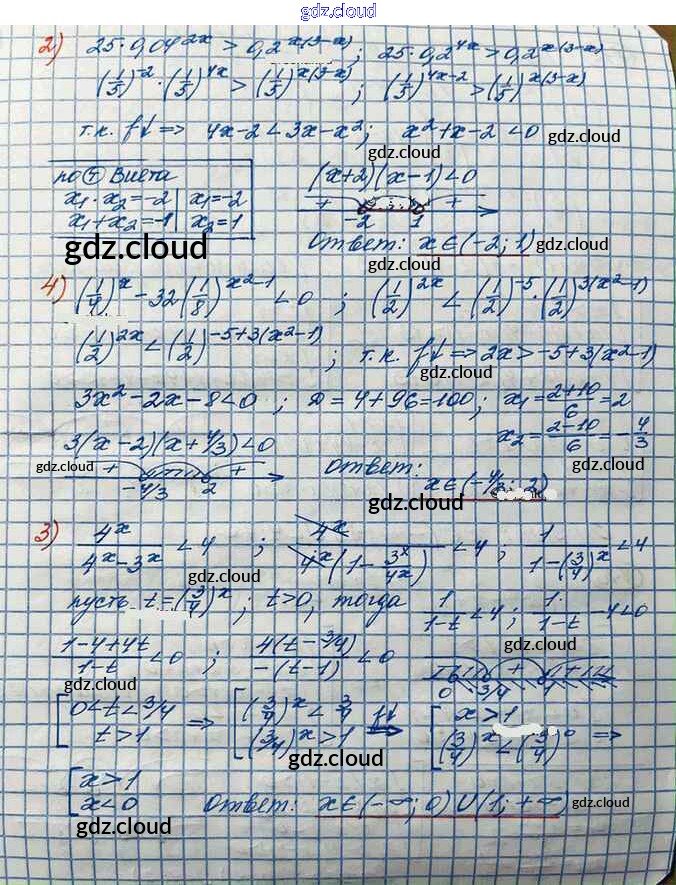 gdz.cloud
2) 25·0,04^{2x} > 0,2^{x(3-x)}; 25·0,2^{4x} > 0,2^{x(3-x)}
(1/5)^{-2} · (1/5)^{4x} > (1/5)^{x(3-x)} ; (1/5)^{4x-2} > (1/5)^{x(3-x)}
т.к. f↓ => 4x-2 < 3x-x²; x²+x-2 < 0 gdz.cloud
gdz.cloud
по т Виета
x₁·x₂=-2 | x₁=-2
x₁+x₂=-1 | x₂=1
(x+2)(x-1)<0
+ - +
-2 1
gdz.cloud
Ответ: x∈(-2; 1) gdz.cloud
4) (1/4)^x - 32(1/8)^{x²-1} < 0 ; (1/2)^{2x} < (1/2)^{-5} · (1/2)^{3(x²-1)}
gdz.cloud
(1/2)^{2x} < (1/2)^{-5+3(x²-1)} ; т.к. f↓ => 2x > -5+3(x²-1)
gdz.cloud
3x²-2x-8<0 ; D=4+96=100; x₁=(2+10)/6=2
x₂=(2-10)/6=-4/3
3(x-2)(x+4/3)<0
gdz.cloud + +
-4/3 2
Ответ: gdz.cloud
x∈(-4/3; 2)
gdz.cloud
3) 4^x/(4^x-3^x) < 4 ; 4^x/(4^x(1-3^x/4^x)) < 4 ; 1/(1-(3/4)^x) < 4
gdz.cloud gdz.cloud
пусть t=(3/4)^x; t>0, тогда 1/(1-t) < 4 ; 1/(1-t) - 4 < 0
gdz.cloud
(1-4+4t)/(1-t) < 0 ; 4(t-3/4)/(-(t-1)) < 0
gdz.cloud
- + -
0 3/4 1
gdz.cloud
[0<t<3/4 => [(3/4)^x < 3/4 f↓=> [x>1
[t>1 [(3/4)^x > 1 [(3/4)^x < (3/4)^0 =>
gdz.cloud gdz.cloud
gdz.cloud
[x>1
[x<0 Ответ: x∈(-∞; 0)∪(1; +∞) gdz.cloud
gdz.cloud
gdz.cloud